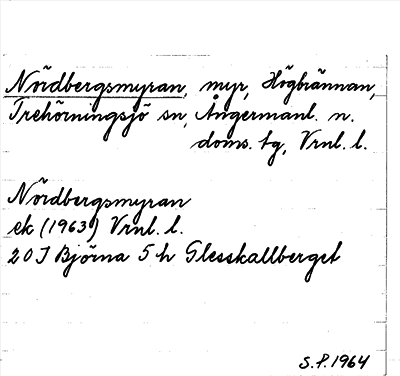 Nördbergsmyran, myr, Högbrännan,
Trehörningsjö sn, Ångermanl. n.
doms. tg, Vrnl. l.
Nördbergsmyran
ek (1963) Vrnl. l.
20 I Björna 5 h Glesskallberget
S.P. 1964